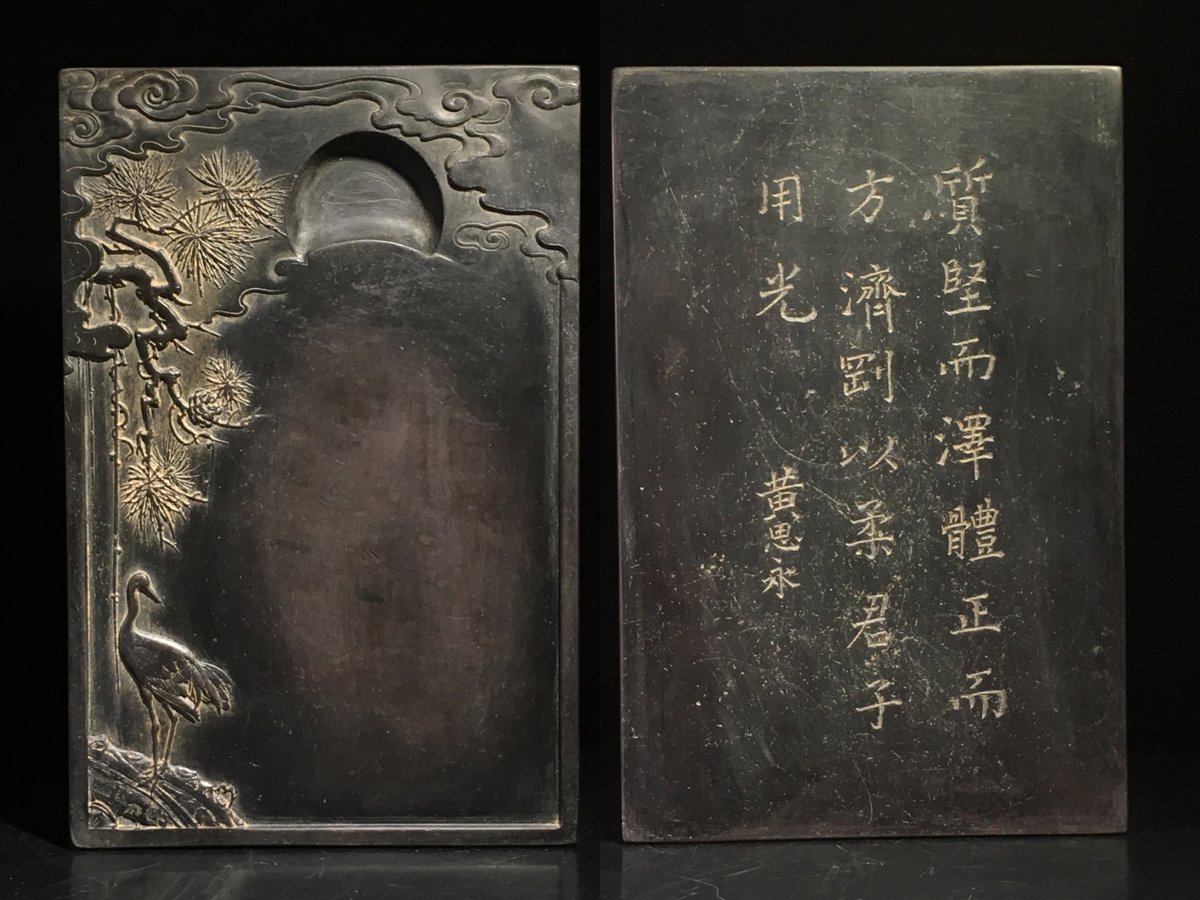 質堅而澤體正而
方濟剛以柔君子
用光
黃思永